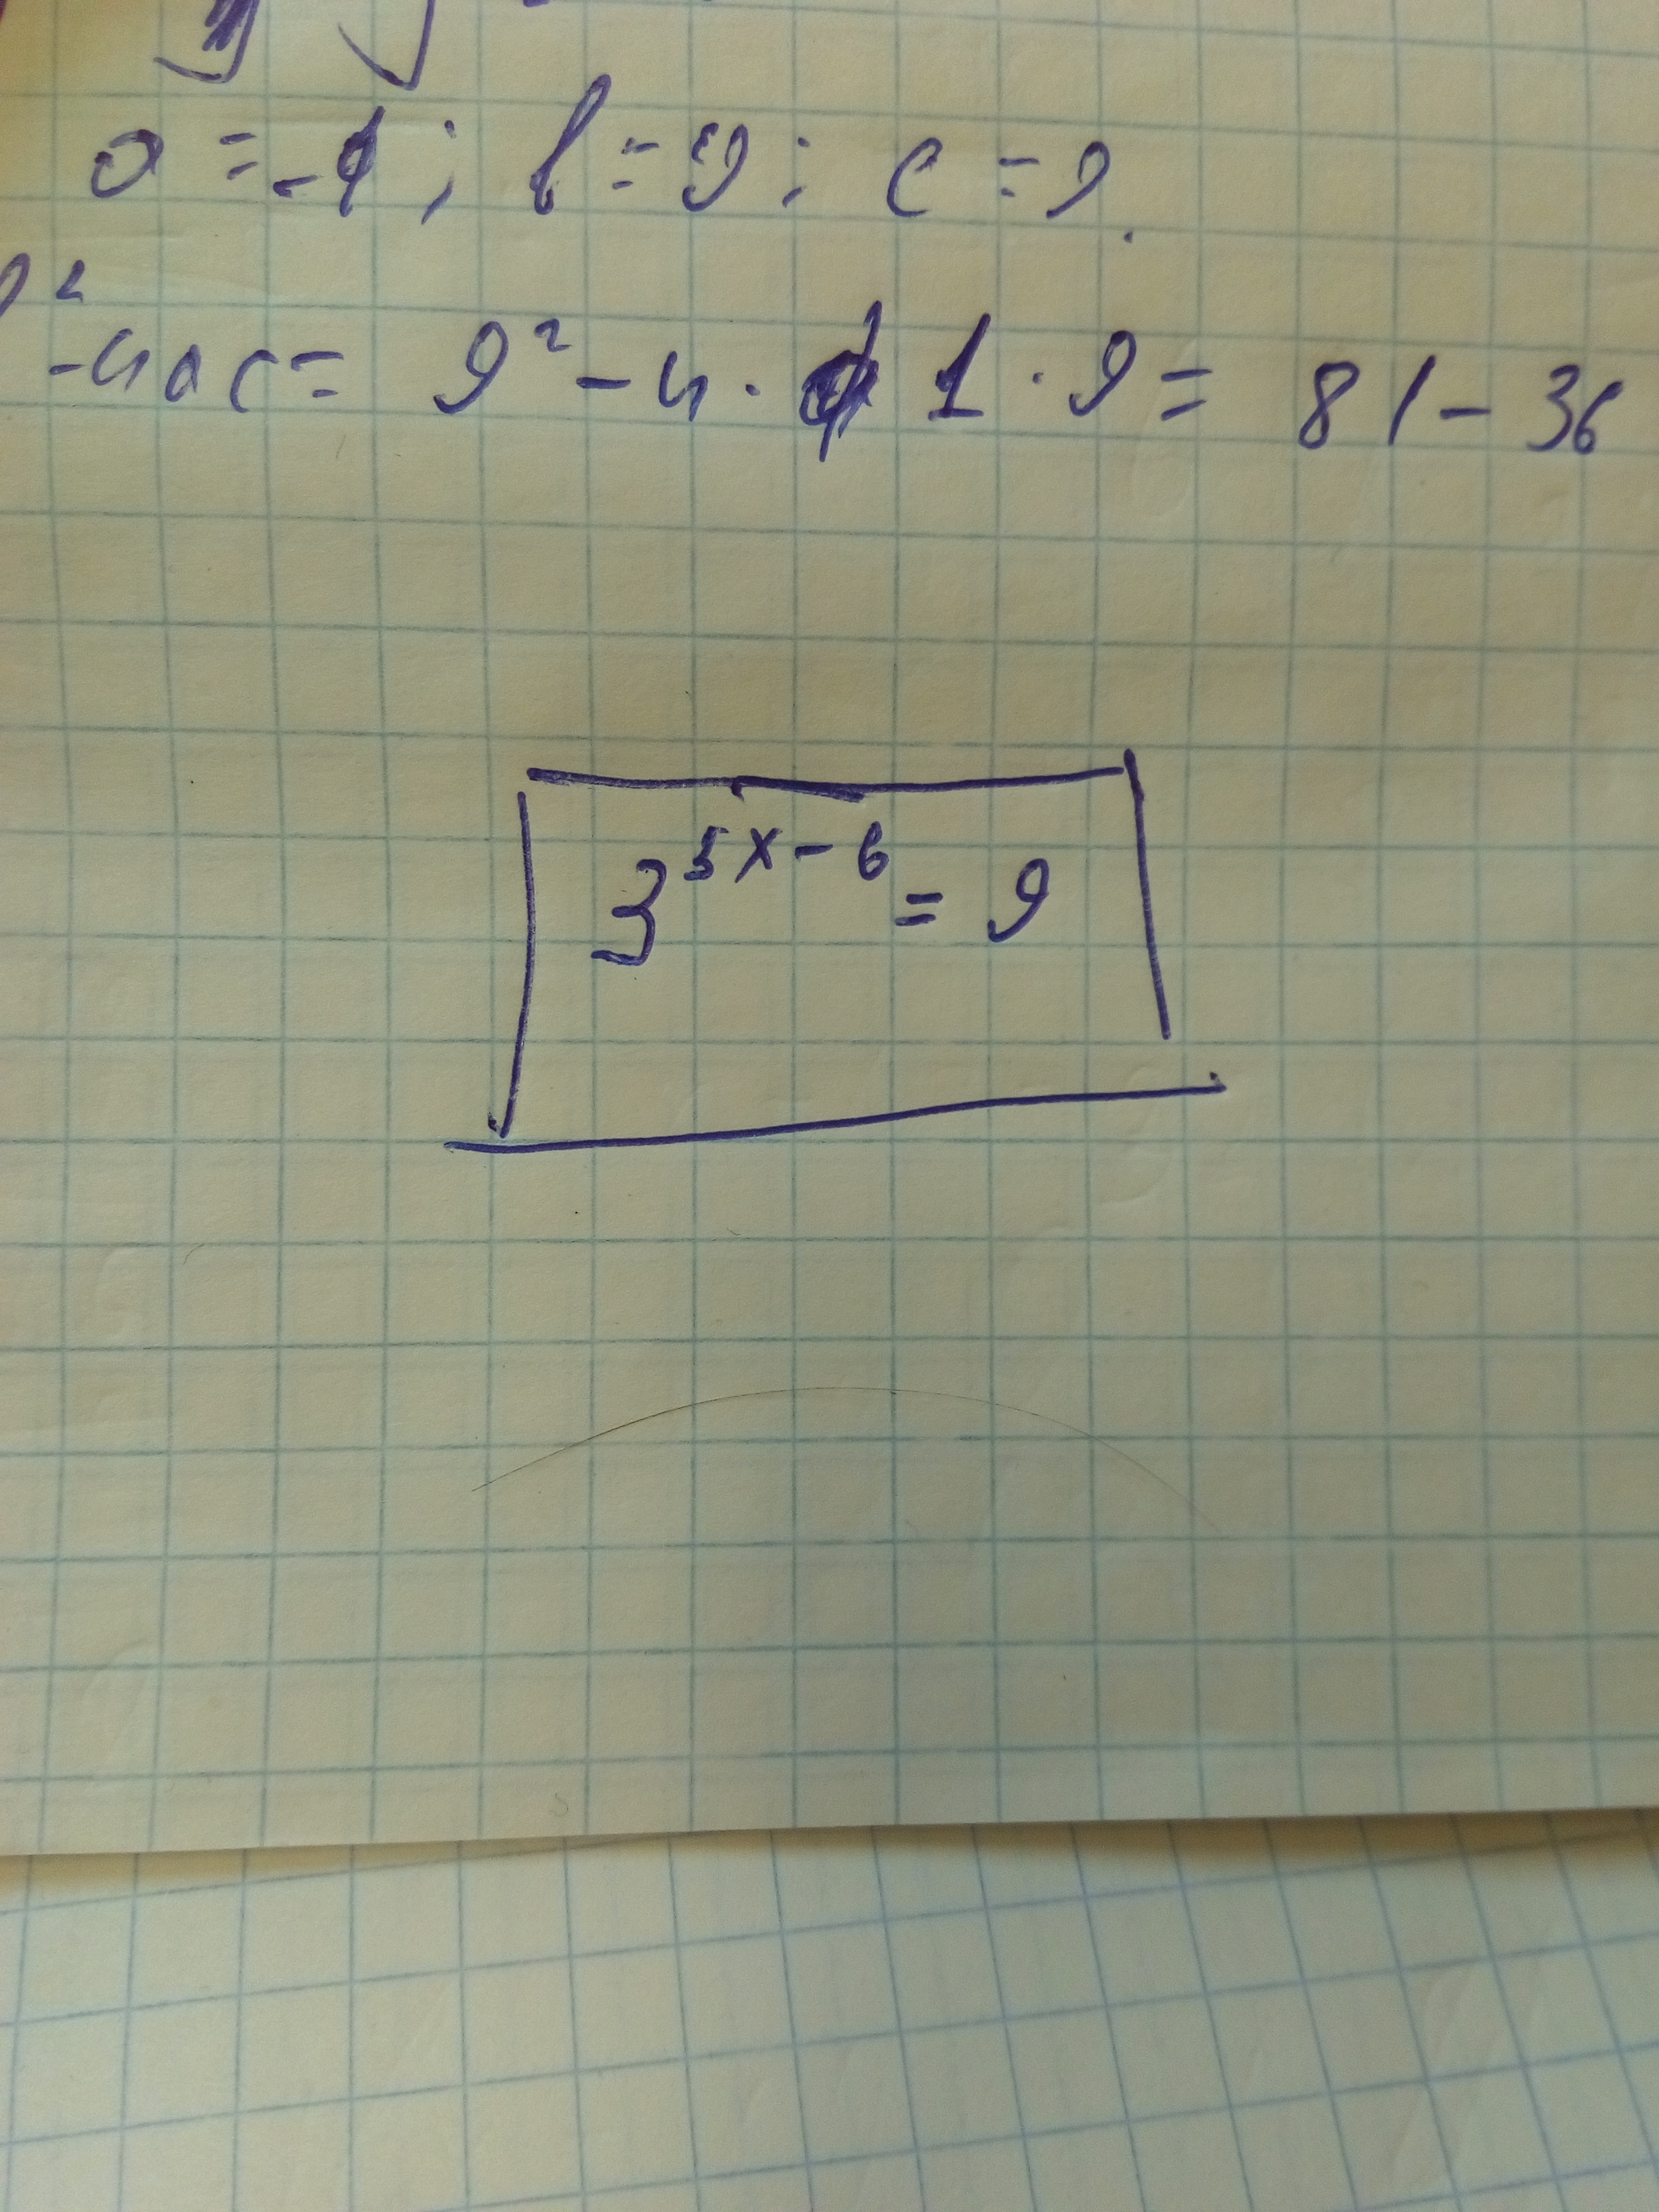 a = -1; b = 9; c = 9.
² - 4ac = 9² - 4 · 1 · 9 = 81 - 36
3^{5x-6} = 9